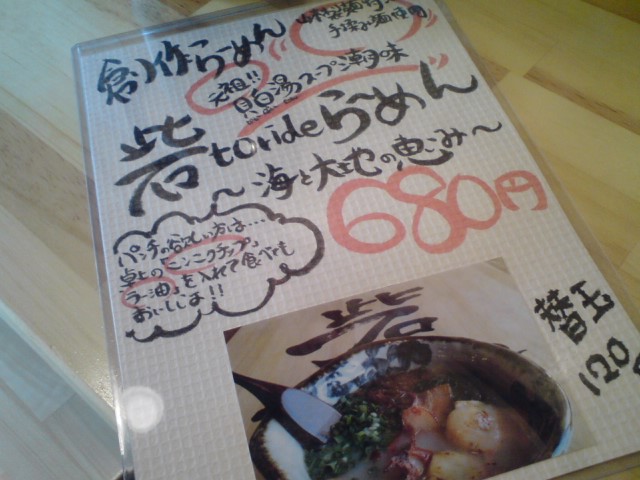 創作らーめん
手揉み麺使用
元祖!!
貝白湯スープ潮味
砦torideらーめん
～海と大地の恵み～
680円
パンチの欲しい方は…
卓上の「ニンニクチップ」
「ラー油」を入れて食べても
おいしいよ!!
砦
替玉
120